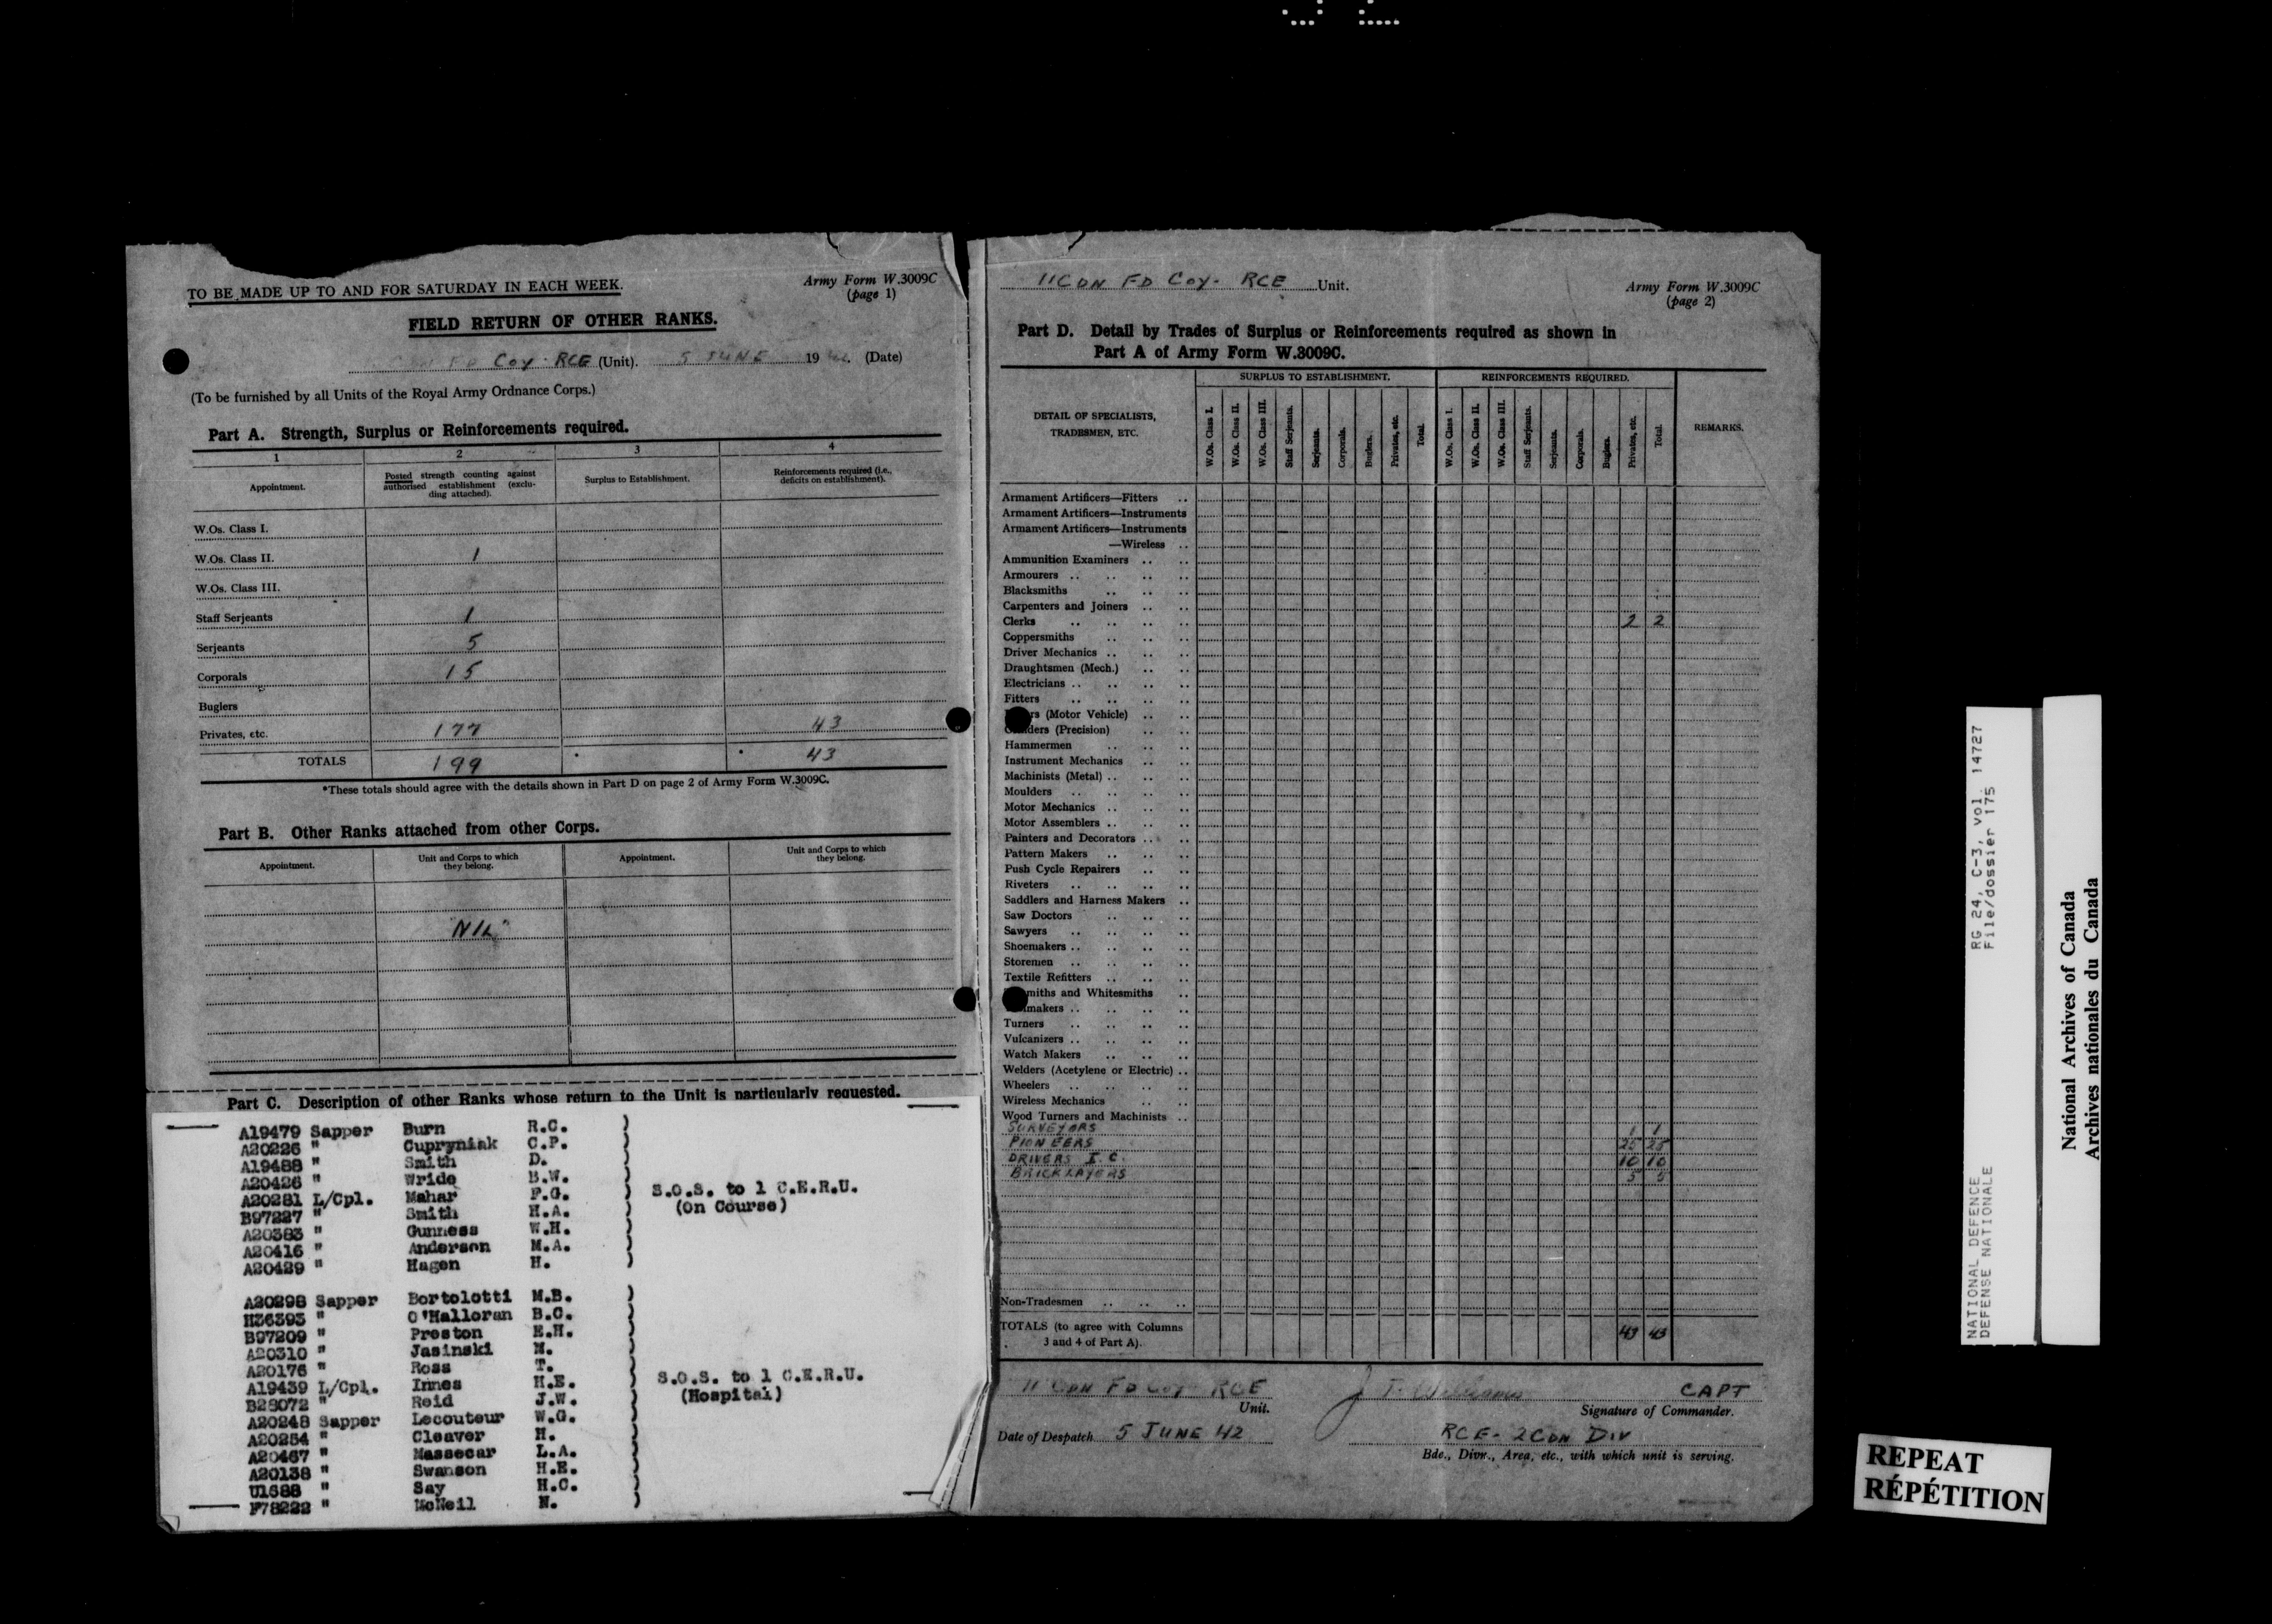 TO BE MADE UP TO AND FOR SATURDAY IN EACH WEEK.
Army Form W.3009C
(page 1)
FIELD RETURN OF OTHER RANKS.
FD COY. RCE (Unit). 5 JUNE 19 (Date)
(To be furnished by all Units of the Royal Army Ordnance Corps.)
Part A. Strength, Surplus or Reinforcements required.
1 2 3 4
Appointment. Posted strength counting against authorised establishment (excluding attached). Surplus to Establishment. Reinforcements required (i.e., deficits on establishment).
W.Os. Class I.
W.Os. Class II. 1
W.Os. Class III.
Staff Serjeants 1
Serjeants 5
Corporals 15
Buglers
Privates, etc. 177 43
TOTALS 199 * * 43
*These totals should agree with the details shown in Part D on page 2 of Army Form W.3009C.
Part B. Other Ranks attached from other Corps.
Appointment. Unit and Corps to which they belong. Appointment. Unit and Corps to which they belong.
"NIL"
Part C. Description of other Ranks whose return to the Unit is particularly requested.
A19479 Sapper Burn R.C. )
A20226 " Cupryniak C.P.
A19488 " Smith D.
A20426 " Wride B.W.
A20281 L/Cpl. Mahar F.G. ) S.O.S. to 1 C.E.R.U.
B97227 " Smith H.A. (On Course)
A20383 " Gunness W.H.
A20416 " Anderson M.A.
A20429 " Hagen H. )
A20298 Sapper Bortolotti M.B. )
H36393 " O'Halloran B.C.
B97209 " Preston E.H.
A20310 " Jasinski M.
A20176 " Ross T.
A19439 L/Cpl. Innes H.E. ) S.O.S. to 1 C.E.R.U.
B28072 " Reid J.W. (Hospital)
A20248 Sapper Lecouteur W.G.
A20254 " Cleaver H.
A20467 " Massecar L.A.
A20138 " Swanson H.E.
U1688 " Say H.C.
F78222 " McNeil N. )
11 CDN FD COY. RCE Unit.
Army Form W.3009C
(page 2)
Part D. Detail by Trades of Surplus or Reinforcements required as shown in
Part A of Army Form W.3009C.
DETAIL OF SPECIALISTS, TRADESMEN, ETC. SURPLUS TO ESTABLISHMENT. REINFORCEMENTS REQUIRED. REMARKS.
W.Os. Class I. W.Os. Class II. W.Os. Class III. Staff Serjeants. Serjeants. Corporals. Buglers. Privates, etc. Total. W.Os. Class I. W.Os. Class II. W.Os. Class III. Staff Serjeants. Serjeants. Corporals. Buglers. Privates, etc. Total.
Armament Artificers—Fitters
Armament Artificers—Instruments
Armament Artificers—Instruments
—Wireless
Ammunition Examiners
Armourers
Blacksmiths
Carpenters and Joiners
Clerks 2 2
Coppersmiths
Driver Mechanics
Draughtsmen (Mech.)
Electricians
Fitters
rs (Motor Vehicle)
ders (Precision)
Hammermen
Instrument Mechanics
Machinists (Metal)
Moulders
Motor Mechanics
Motor Assemblers
Painters and Decorators
Pattern Makers
Push Cycle Repairers
Riveters
Saddlers and Harness Makers
Saw Doctors
Sawyers
Shoemakers
Storemen
Textile Refitters
miths and Whitesmiths
makers
Turners
Vulcanizers
Watch Makers
Welders (Acetylene or Electric)
Wheelers
Wireless Mechanics
Wood Turners and Machinists
SURVEYORS 1 1
PIONEERS 25 25
DRIVERS I.C. 10 10
BRICKLAYERS 5 5
Non-Tradesmen
TOTALS (to agree with Columns
3 and 4 of Part A). 43 43
11 CDN FD COY RCE
Unit.
J T. Williams CAPT
Signature of Commander.
Date of Despatch 5 JUNE 42
RCE - 2 CDN DIV
Bde., Divn., Area, etc., with which unit is serving.
NATIONAL DEFENCE RG 24, C-3, vol. 14727
DEFENSE NATIONALE File/dossier 175
National Archives of Canada
Archives nationales du Canada
REPEAT
RÉPÉTITION